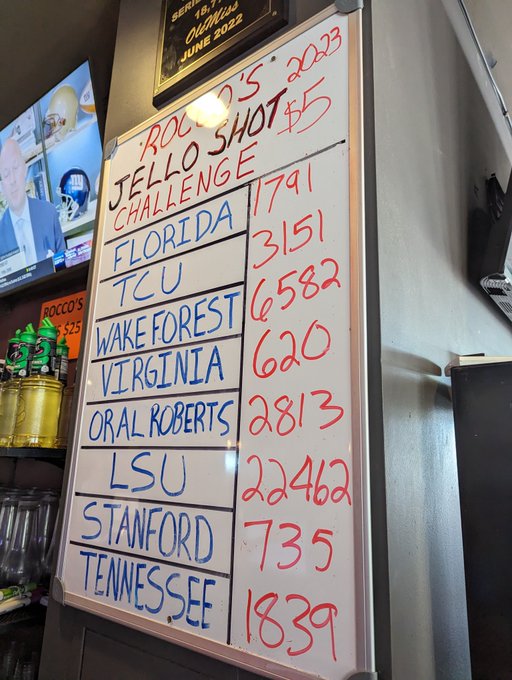 18,7
OleMiss
JUNE 2022
ROCCO'S 2023
JELLO SHOT $5
CHALLENGE
FLORIDA 1791
TCU 3151
WAKE FOREST 6582
VIRGINIA 620
ORAL ROBERTS 2813
LSU 22462
STANFORD 735
TENNESSEE 1839
ROCCO'S
$25